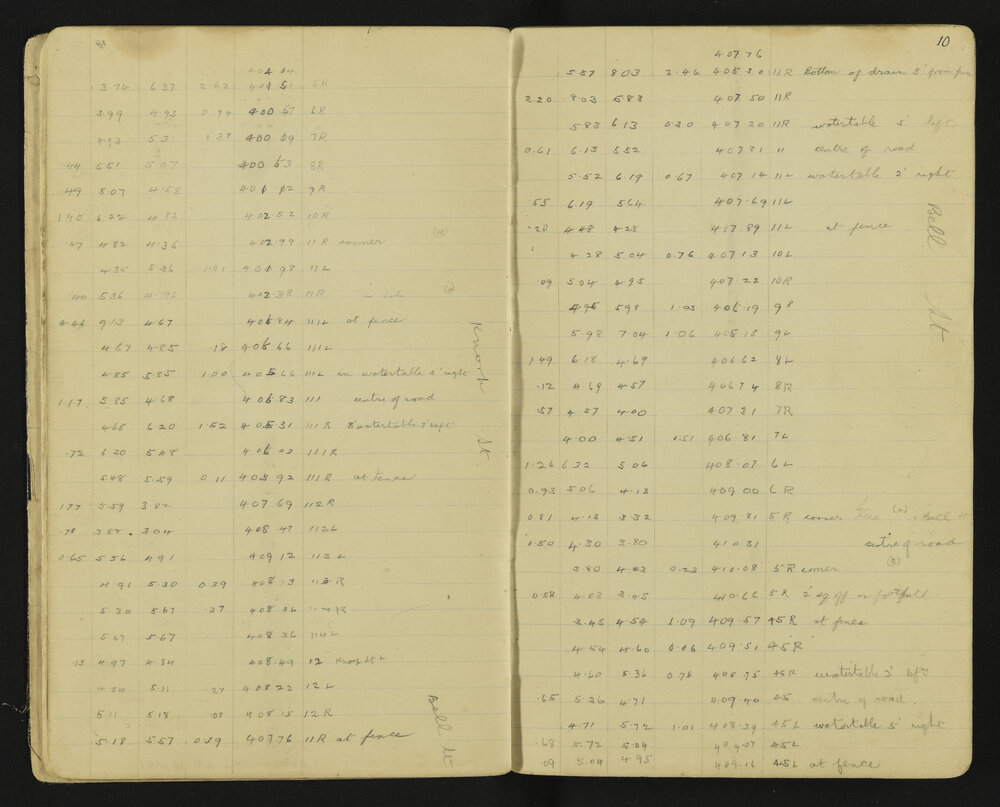 3.74 6.37 2.63 401 51 5R
5.99 4.93 0.94 400 57 6R
4.93 5.31 0.38 400 19 7R
.44 5.51 5.07 400 63 8R
.49 5.07 4.58 401.12 9R
1.40 6.22 4.82 402.52 10R
.47 4.82 4.35 402.99 11R corner
4.35 5.36 1.01 401 98 11L
.40 5.36 4.96 402.38 11R
4.46 9.13 4.67 406 84 11L at fence
4.67 4.85 .18 406 66 111L
4.85 5.85 1.00 405 66 111L in watertable 2' right
1.17 5.85 4.68 406.83 111 centre of road
4.68 6.20 1.52 405.31 111R watertable left
.72 6.20 5.48 406 03 111R
5.48 5.59 0.11 405 92 111R at fence
Knook St
1.77 5.59 3.82 407 69 112R
.78 3.82 3.04 408 47 112L
0.65 5.56 4.91 409 12 113L
4.91 5.30 0.39 408 73 113R
5.30 5.67 .37 408 36 114R
5.67 5.67 408 36 114L
.13 4.97 4.84 408.49 12
4.84 5.11 .27 408 22 12L
5.11 5.18 .07 408 15 12R
5.18 5.57 0.39 407 76 11R at fence
Bell St
10
407 76
5.57 8.03 2.46 405 30 11R Bottom of drain 5' from
2.20 8.03 5.83 407 50 11R
5.83 6.13 0.30 407 20 11R watertable 5' left
0.61 6.13 5.52 407 81 11 centre of road
5.52 6.19 0.67 407 14 11L watertable 2' right
.55 6.19 5.64 407.69 11L
.20 4.48 4.28 407 89 11L at fence
4.28 5.04 0.76 407 13 10L
.09 5.04 4.95 407 22 10R
4.95 5.98 1.03 406 19 9R
5.98 7.04 1.06 405.13 9L
1.49 6.18 4.69 406 62 8L
.12 4.69 4.57 406 74 8R
.57 4.57 4.00 407.31 7R
4.00 4.51 0.51 406.81 7L
1.26 6.32 5.06 408.07 6L
0.93 5.06 4.13 409.00 6R
0.81 4.13 3.32 409.81 5R corner Bell St
0.50 4.30 3.80 410 31 centre of road
3.80 4.03 0.23 410.08 5R corner (B)
0.58 4.03 3.45 410.66 5R 2' off
3.45 4.54 1.09 409.57 45R at fence
4.54 4.60 0.06 409.51 45R
4.60 5.36 0.76 408.75 45R watertable 2' left
.65 5.36 4.71 409.40 45 centre of road
4.71 5.72 1.01 408.39 45L watertable 5' right
.68 5.72 5.04 409.07 45L
.09 5.04 4.95 409.16 45L at fence
Bell St